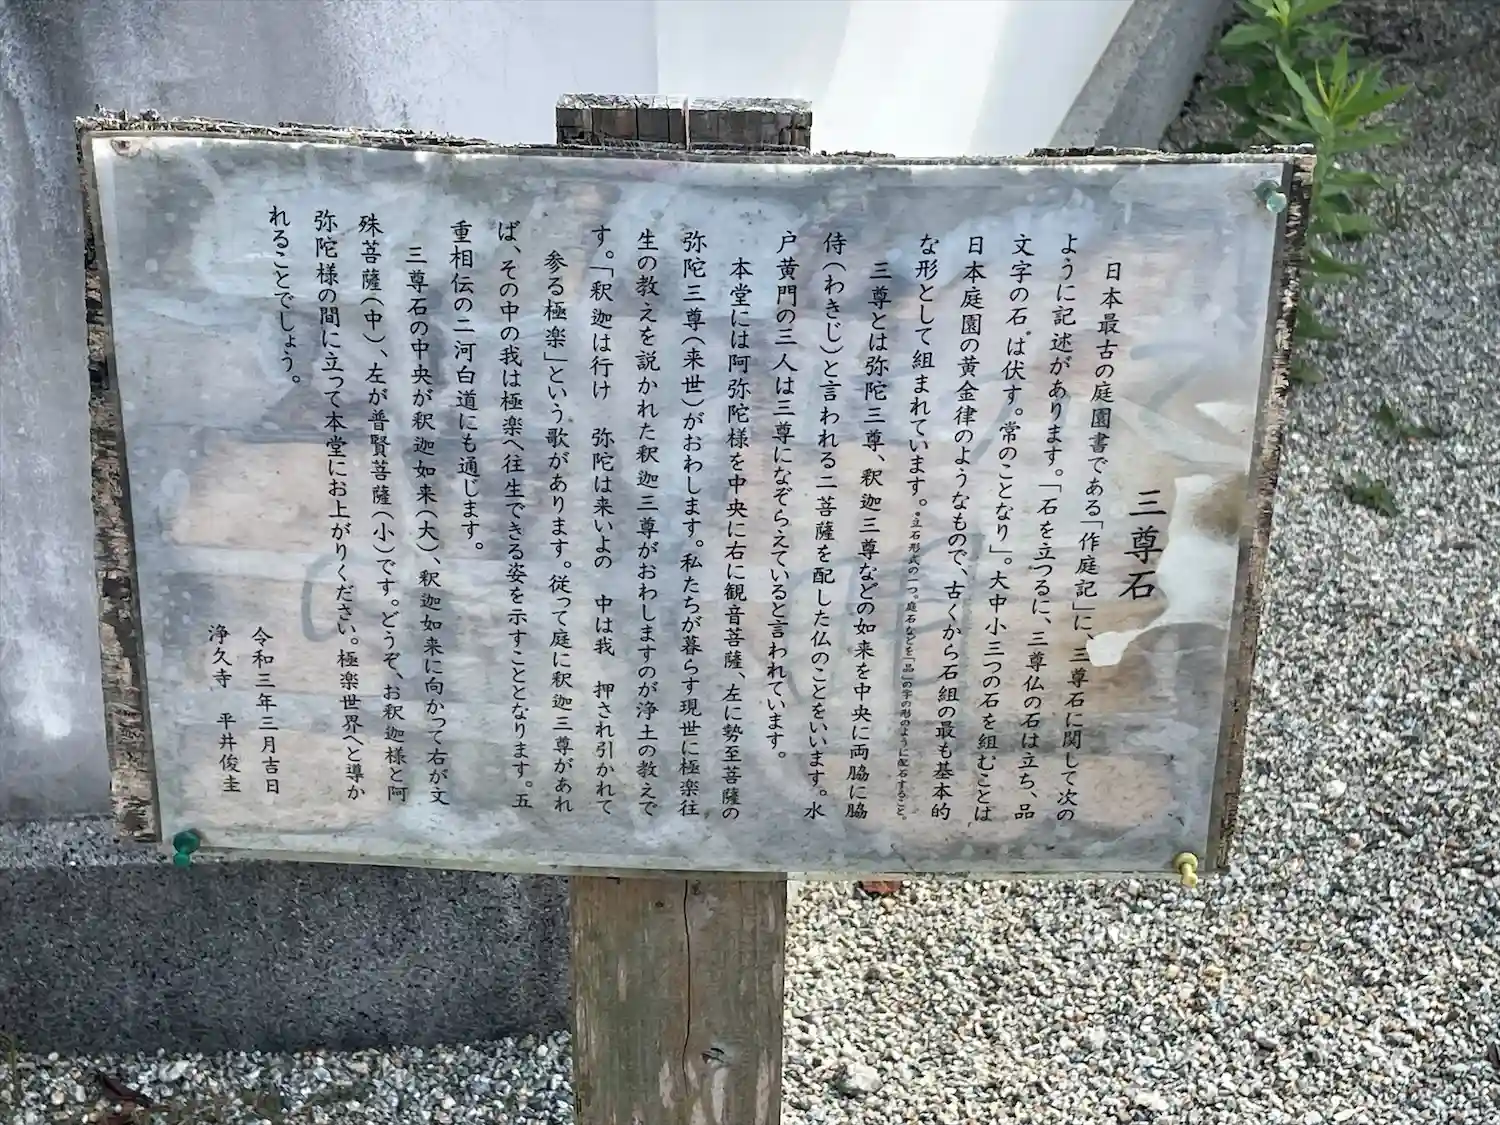 三尊石
日本最古の庭園書である「作庭記」に、三尊石に関して次の
ように記述があります。「石を立つるに、三尊仏の石は立ち、品
文字の石*は伏す。常のことなり」。大中小三つの石を組むことは
日本庭園の黄金律のようなもので、古くから石組の最も基本的
な形として組まれています。*立石形式の一つ。庭石などを「品」の字の形のように配石すること。
三尊とは弥陀三尊、釈迦三尊などの如来を中央に両脇に脇
侍(わきじ)と言われる二菩薩を配した仏のことをいいます。水
戸黄門の三人は三尊になぞらえていると言われています。
本堂には阿弥陀様を中央に右に観音菩薩、左に勢至菩薩の
弥陀三尊(来世)がおわします。私たちが暮らす現世に極楽往
生の教えを説かれた釈迦三尊がおわしますのが浄土の教えで
す。「釈迦は行け　弥陀は来いよの　中は我　押され引かれて
参る極楽」という歌があります。従って庭に釈迦三尊があれ
ば、その中の我は極楽へ往生できる姿を示すこととなります。五
重相伝の二河白道にも通じます。
三尊石の中央が釈迦如来(大)、釈迦如来に向かって右が文
殊菩薩(中)、左が普賢菩薩(小)です。どうぞ、お釈迦様と阿
弥陀様の間に立って本堂にお上がりください。極楽世界へと導か
れることでしょう。
令和三年三月吉日
浄久寺　平井俊圭